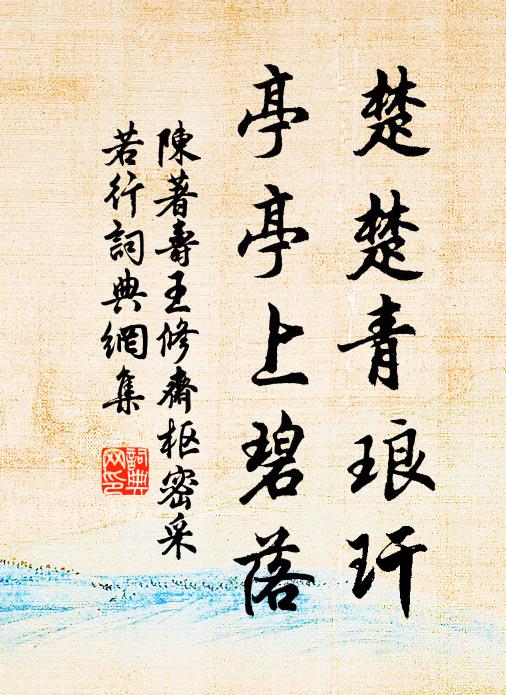 楚楚青琅玕
亭亭上碧落
陳著壽王修齋枢密采
若行詞典網集
詞典
网印